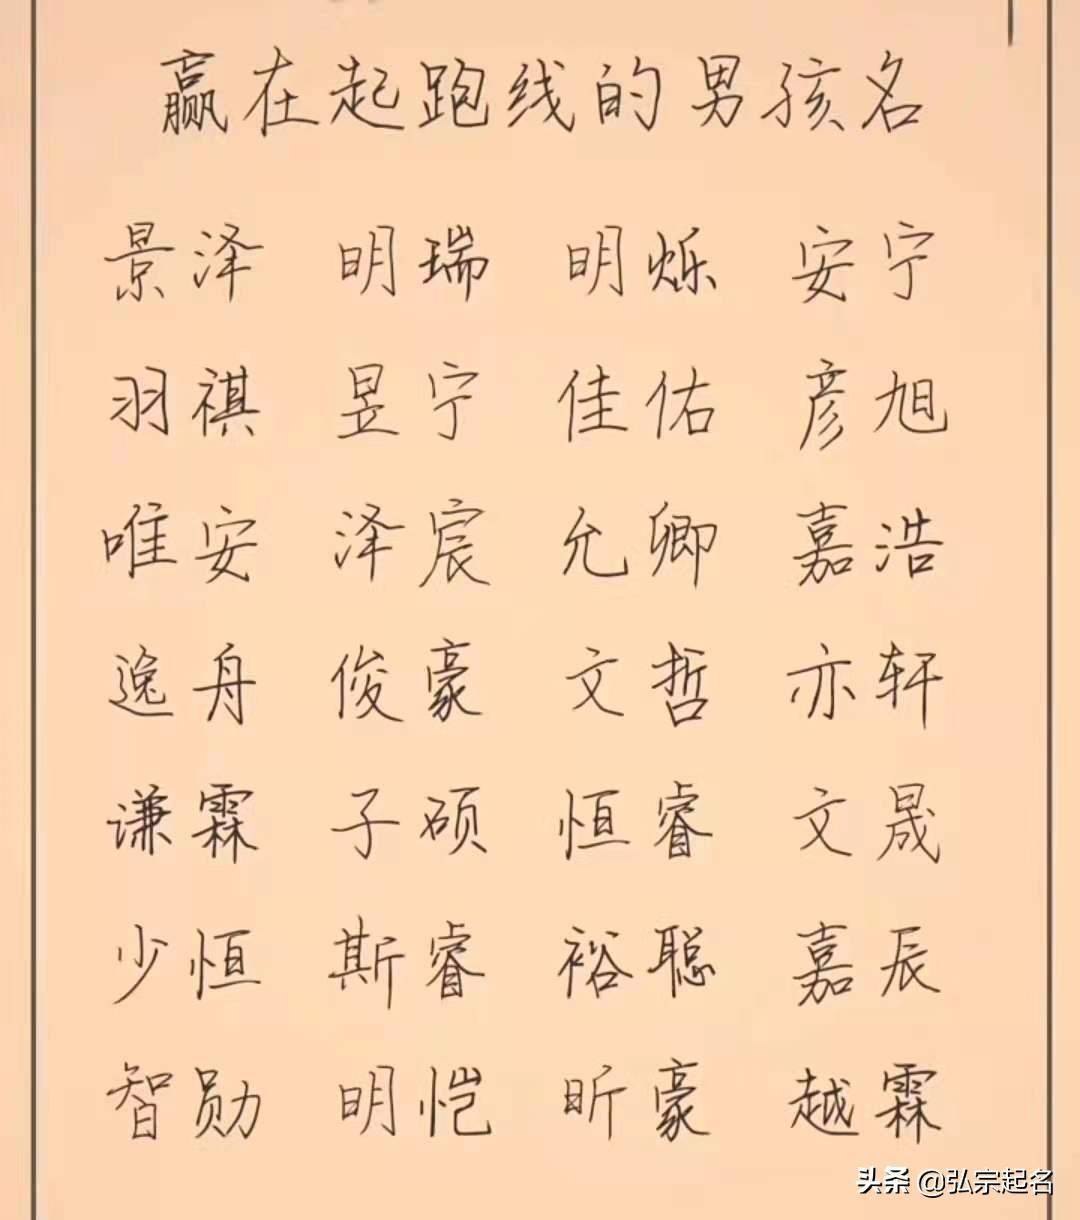 赢在起跑线的男孩名
景泽 明瑞 明烁 安宁
羽祺 昱宁 佳佑 彦旭
唯安 泽宸 允卿 嘉浩
逸舟 俊豪 文哲 亦轩
谦霖 子硕 恒睿 文晟
少恒 斯睿 裕聪 嘉辰
智勋 明恺 昕豪 越霖
头条 @弘宗起名